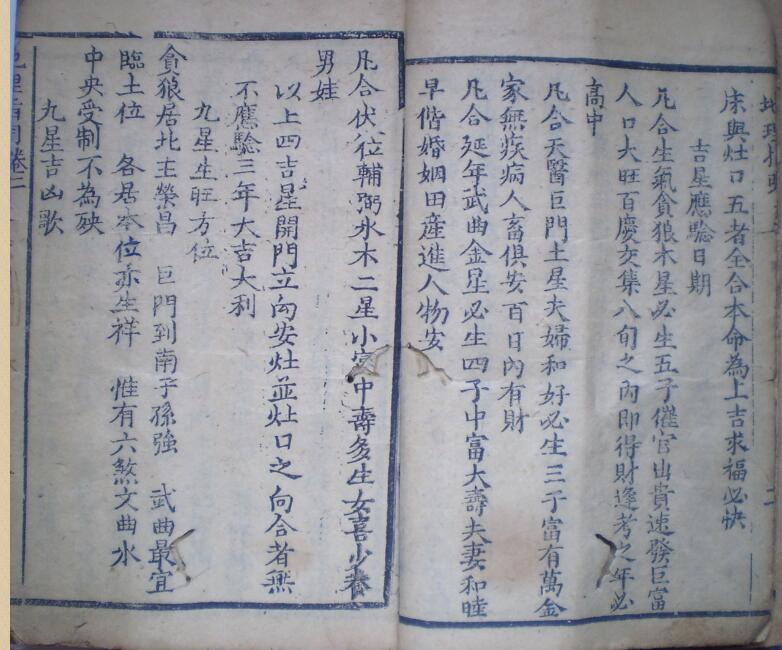 床與灶口五者全合本命為上吉求福必快
吉星應驗日期
凡合生氣貪狼木星必生五子催官出貴速發巨富
人口大旺百慶交集八旬之內即得財逢考之年必
高中
凡合天醫巨門土星夫婦和好必生三子富有萬金
家無疾病人畜俱安百日內有財
凡合延年武曲金星必生四子中富大壽夫妻和睦
早偕婚姻田產進人物安
凡合伏位輔弼水木二星小富中壽多生女喜少養
男娃
以上四吉星開門立向安灶並灶口之向合者無
不應驗三年大吉大利
九星生旺方位
貪狼居北主榮昌 巨門到南子孫強 武曲最宜
臨土位 各居本位亦生祥 惟有六煞文曲水
中央受制不為殃
九星吉凶歌